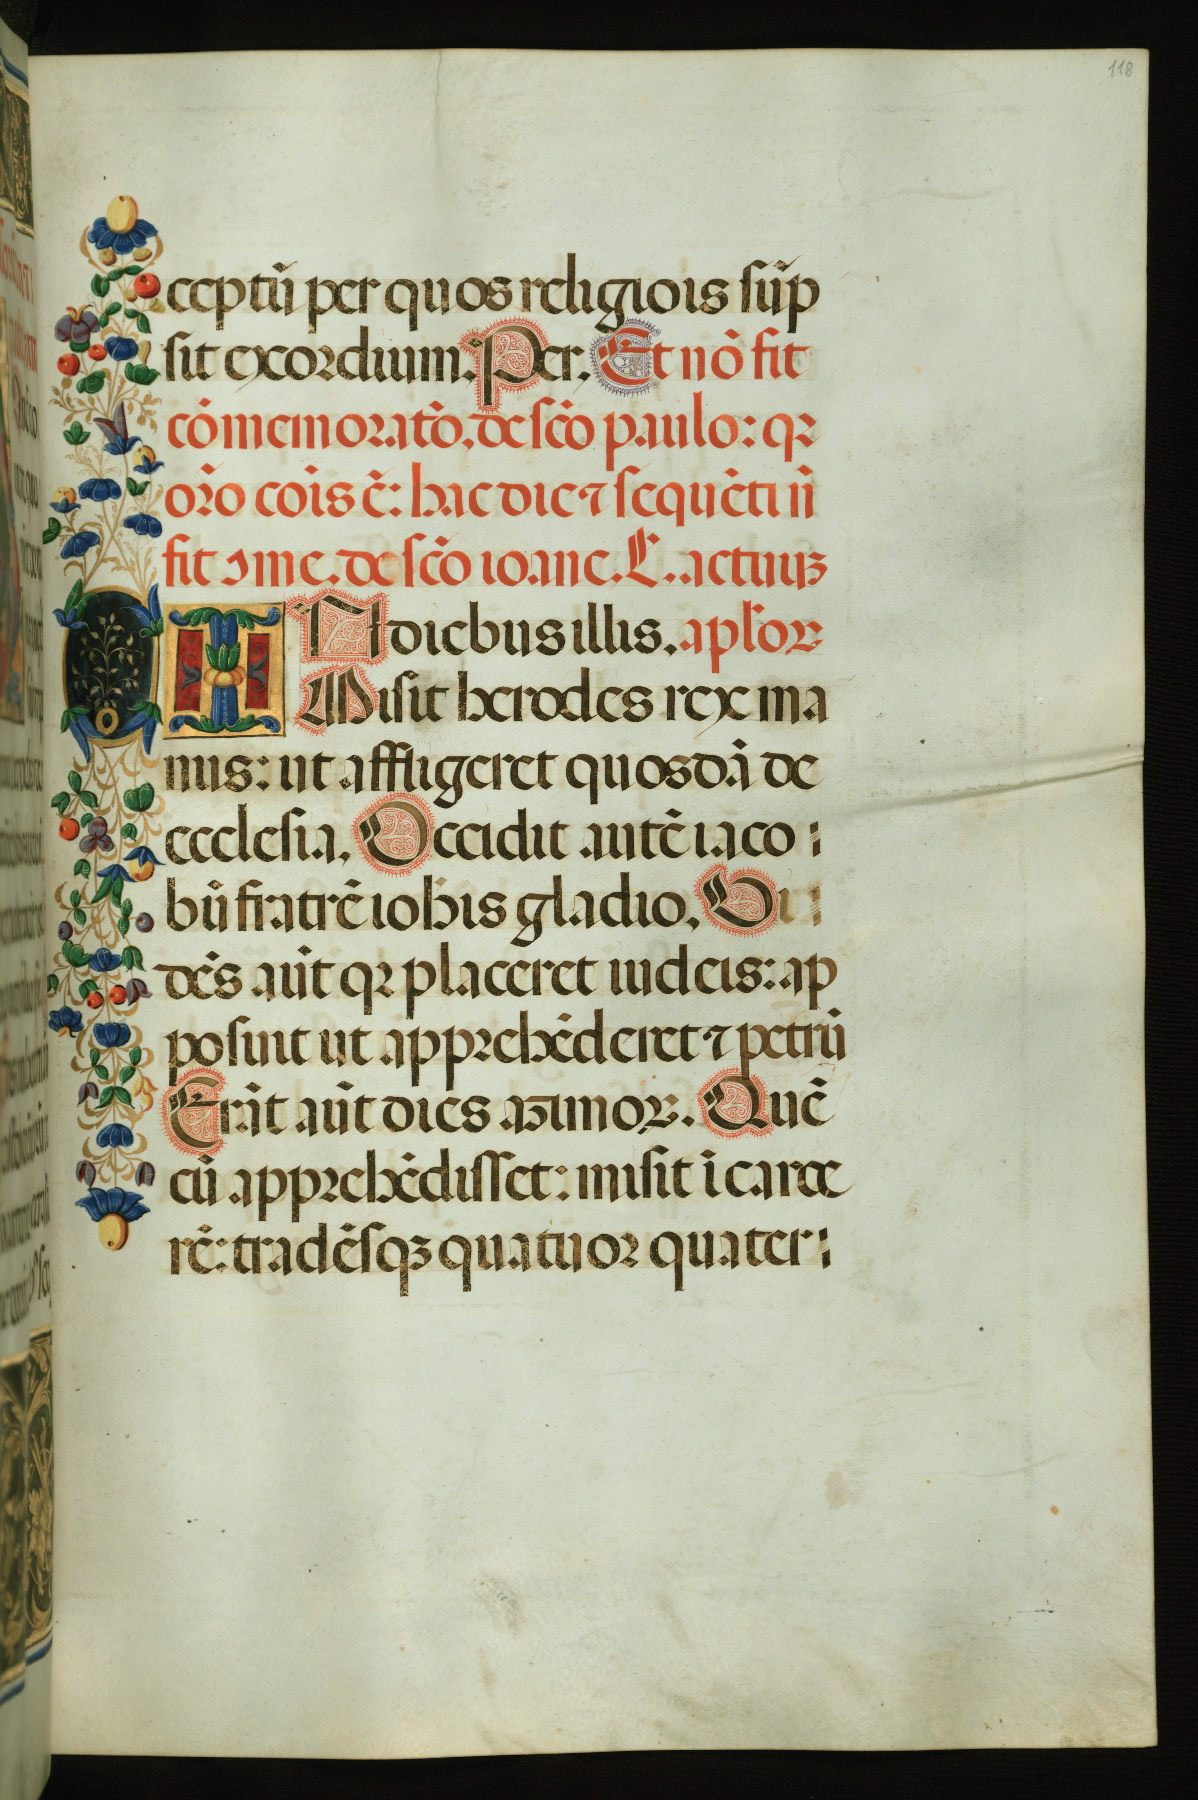 118
ceptũ per quos religiois sũp
sit exordium. Per. Et nõ fit
cõmemoratõ. de scõ paulo: qꝛ
orõ cõis ẽ: hac die ⁊ sequẽti ñ
fit ↄme. de scõ ioane. L. actuuꝫ
In diebus illis. aplꝛoꝝ
Misit herodes rex ma
nus: ut affligeret quosdã de
ecclesia. Occidit autẽ iaco
bũ fratrẽ iohis gladio. Ui
dẽs aũt qꝛ placeret iudeis: ap
posuit ut apprehẽderet ⁊ petrũ
Erãt aũt dies azimoꝝ. Quẽ
cũ apprehẽdisset: misit ĩ carce
rẽ: tradẽsqꝫ quatuor quater